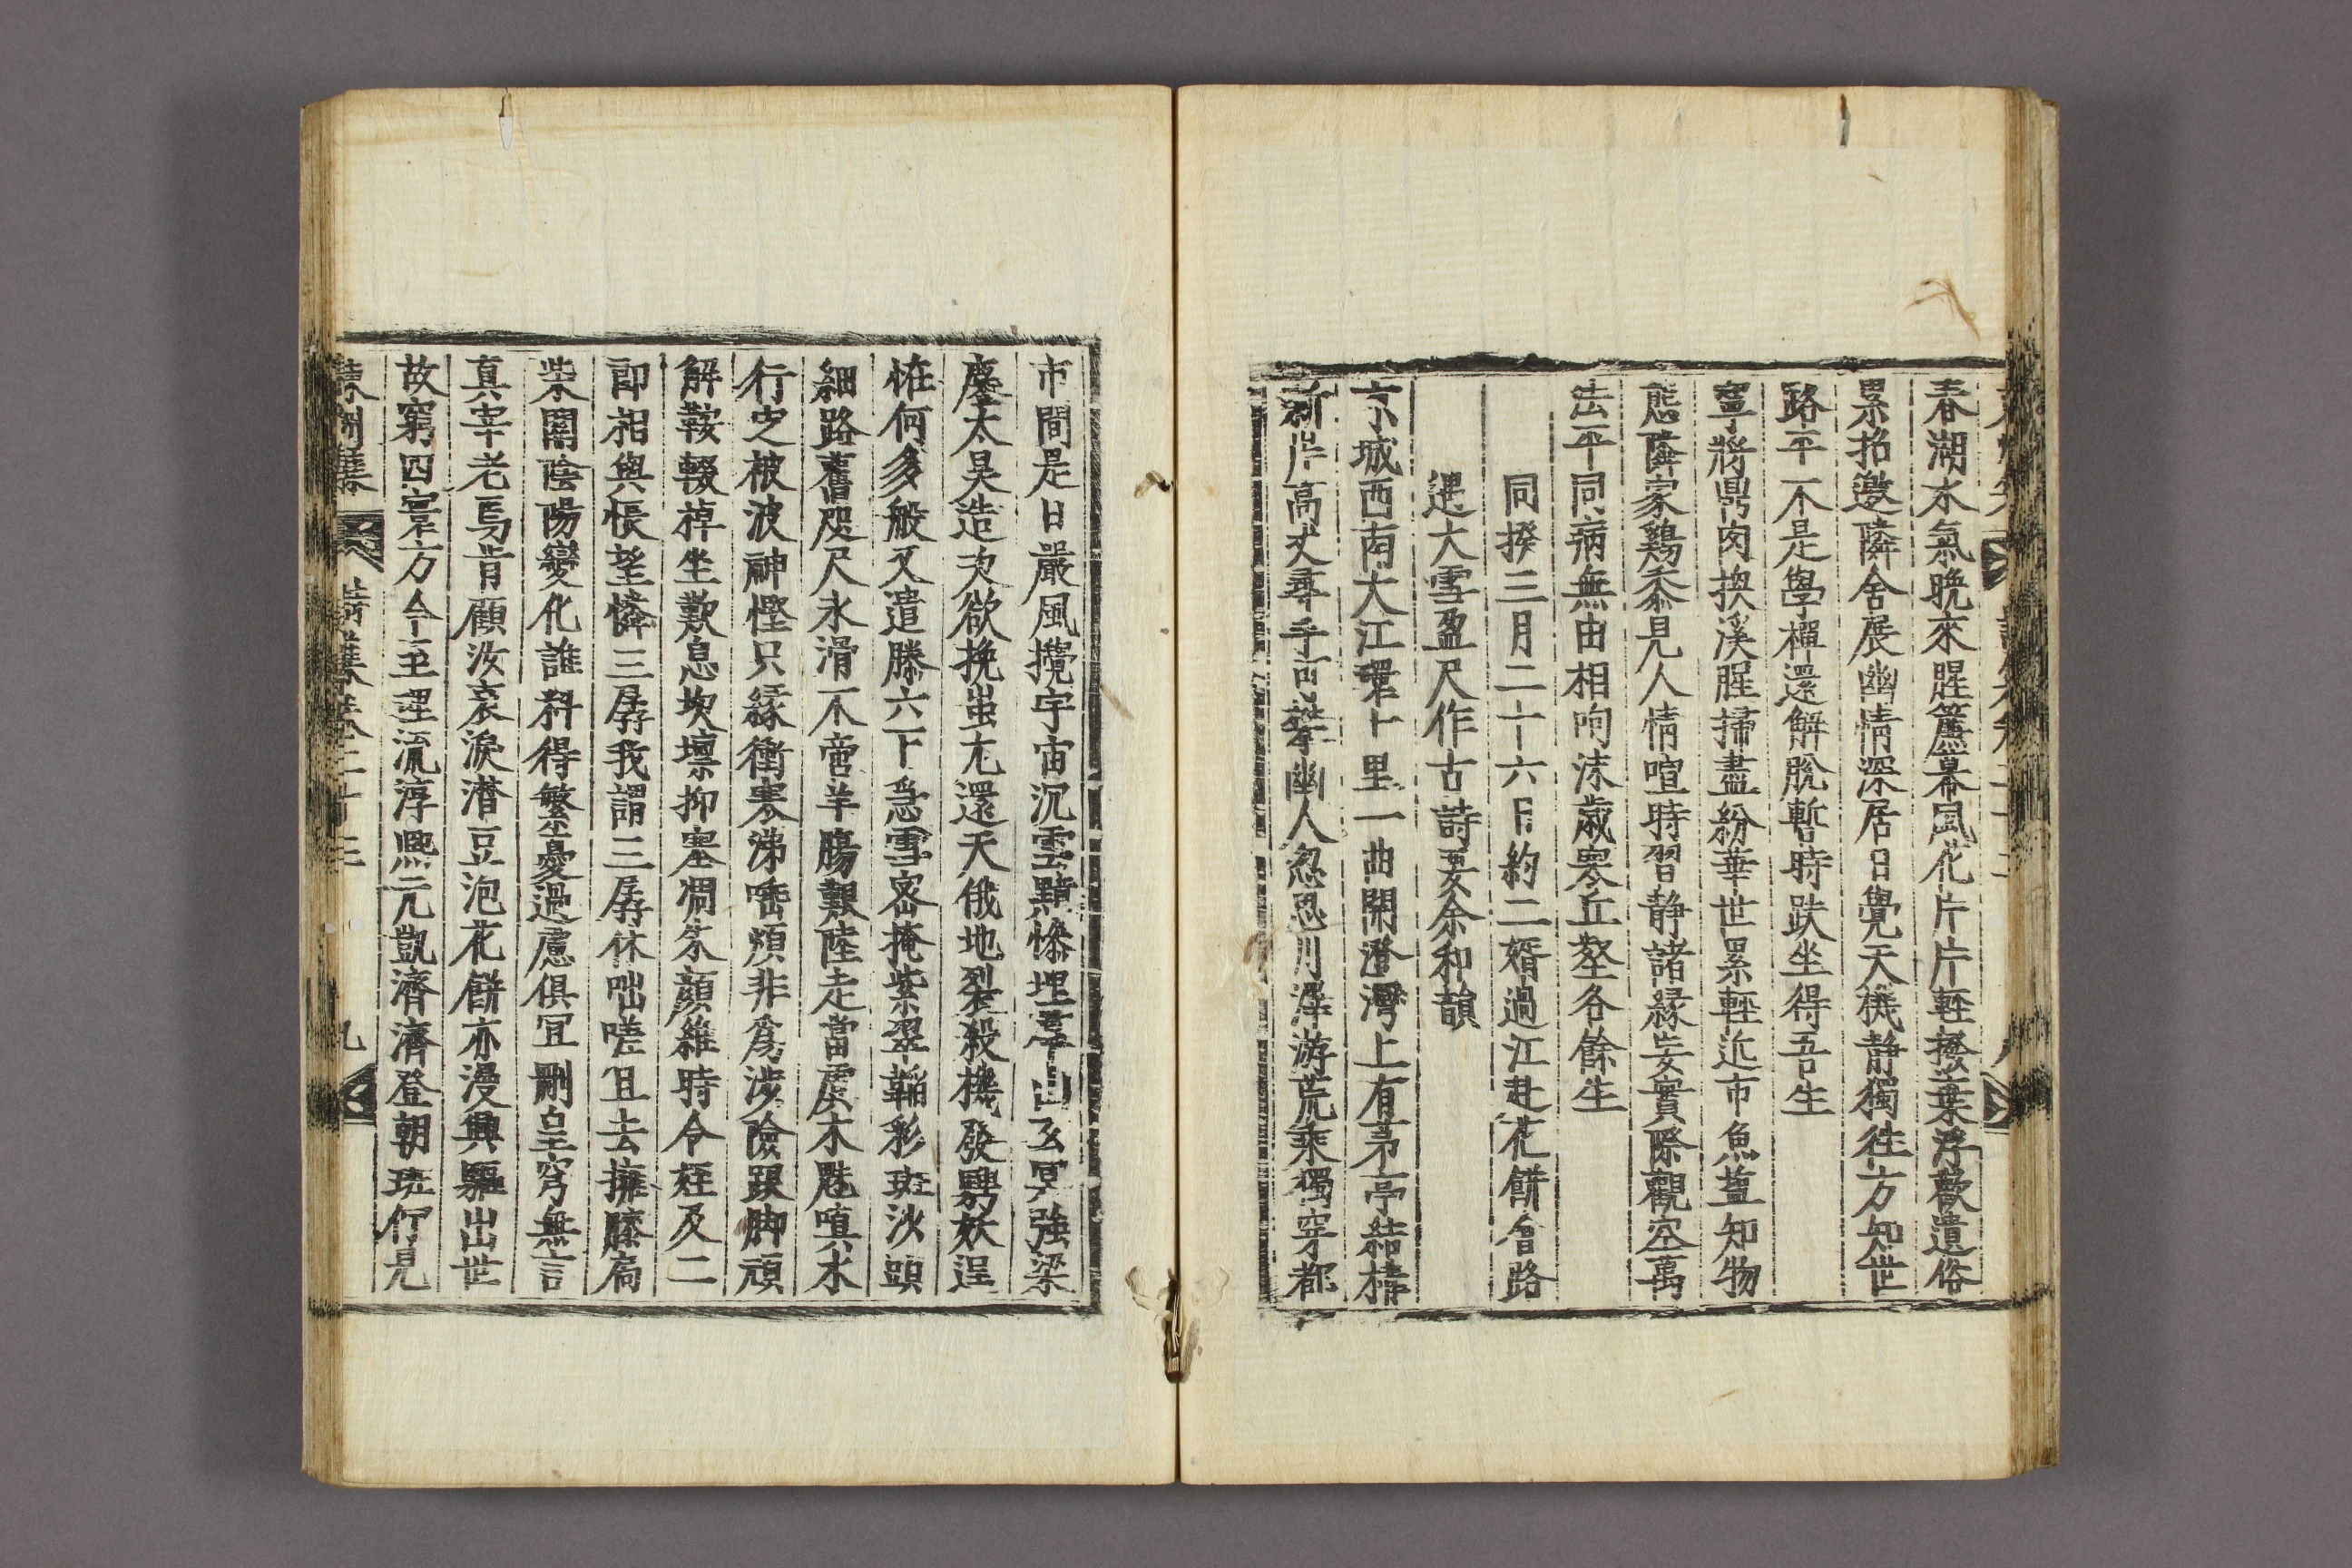 春湖水氣晩來腥簾幕風花片片輕撥葉浮歡遣俗
累招邀隣舍展幽情深居日覺天機静獨徃方知世
路平不是學禪還解脫暫時趺坐得吾生
寧將鼎肉換溪腥掃盡紛華世累輕近市魚蓋知物
態隣家鷄黍見人情喧時習静諸縁妄實際觀空萬
法平同病無由相呴沫歳寒丘壑各餘生
同揆三月二十六日約二婿過江赴花餠會路
遇大雪盈尺作古詩要余和韻
京城西南大江環十里一曲開澄灣上有茅亭結構
新岸高丈尋手可攀幽人忽思川澤游荒乘獨穿都
市間是日嚴風攪宇宙沉雲黯慘埋羣山玄冥強梁
鏖太昊造次欲挽蚩尤還天俄地裂殺機發騁妖逞
恠何多般又遣滕六下急雪密掩紫翠韜彩斑沙頭
細路舊咫尺水滑不啻羊膓艱陸走當虞木魅嗔水
行之被波神慳只縁衝寒沸唾煩非爲涉險跌脚頑
解鞍輟棹坐歎息坎壈抑塞凋朱顔維時令姪及二
郎相與悵望憐三孱我謂三孱休咄嗟且去擁膝扃
柴關陰陽變化誰料得繁憂過慮俱冝刪皇穹無言
真宰老焉肯顧汝哀淚潸豆泡花餠亦漫興驅出世
故窮四寰方今至理流淳熙元凱濟濟登朝班佇見
東州集 詩集卷之十三 九